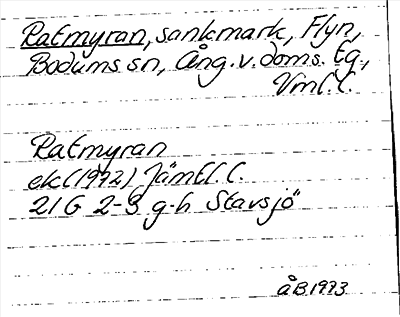 Ratmyran, sankmark, Flyn,
Bodums sn, Ång. v. doms. tg.,
Vml. l.
Ratmyran
ek (1972) Jämtl. l.
21 G 2-3 g-h Stavsjö
ÅB 1973